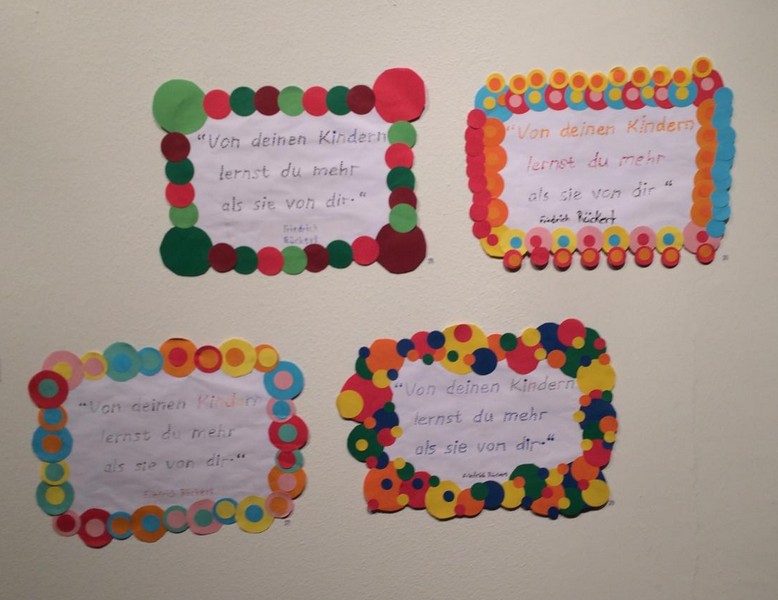 "Von deinen Kindern
lernst du mehr
als sie von dir."
Friedrich
Rückert
"Von deinen Kindern
lernst du mehr
als sie von dir"
Friedrich Rückert
"Von deinen Kindern
lernst du mehr
als sie von dir."
Friedrich Rückert
"Von deinen Kindern
lernst du mehr
als sie von dir."
Friedrich Rückert